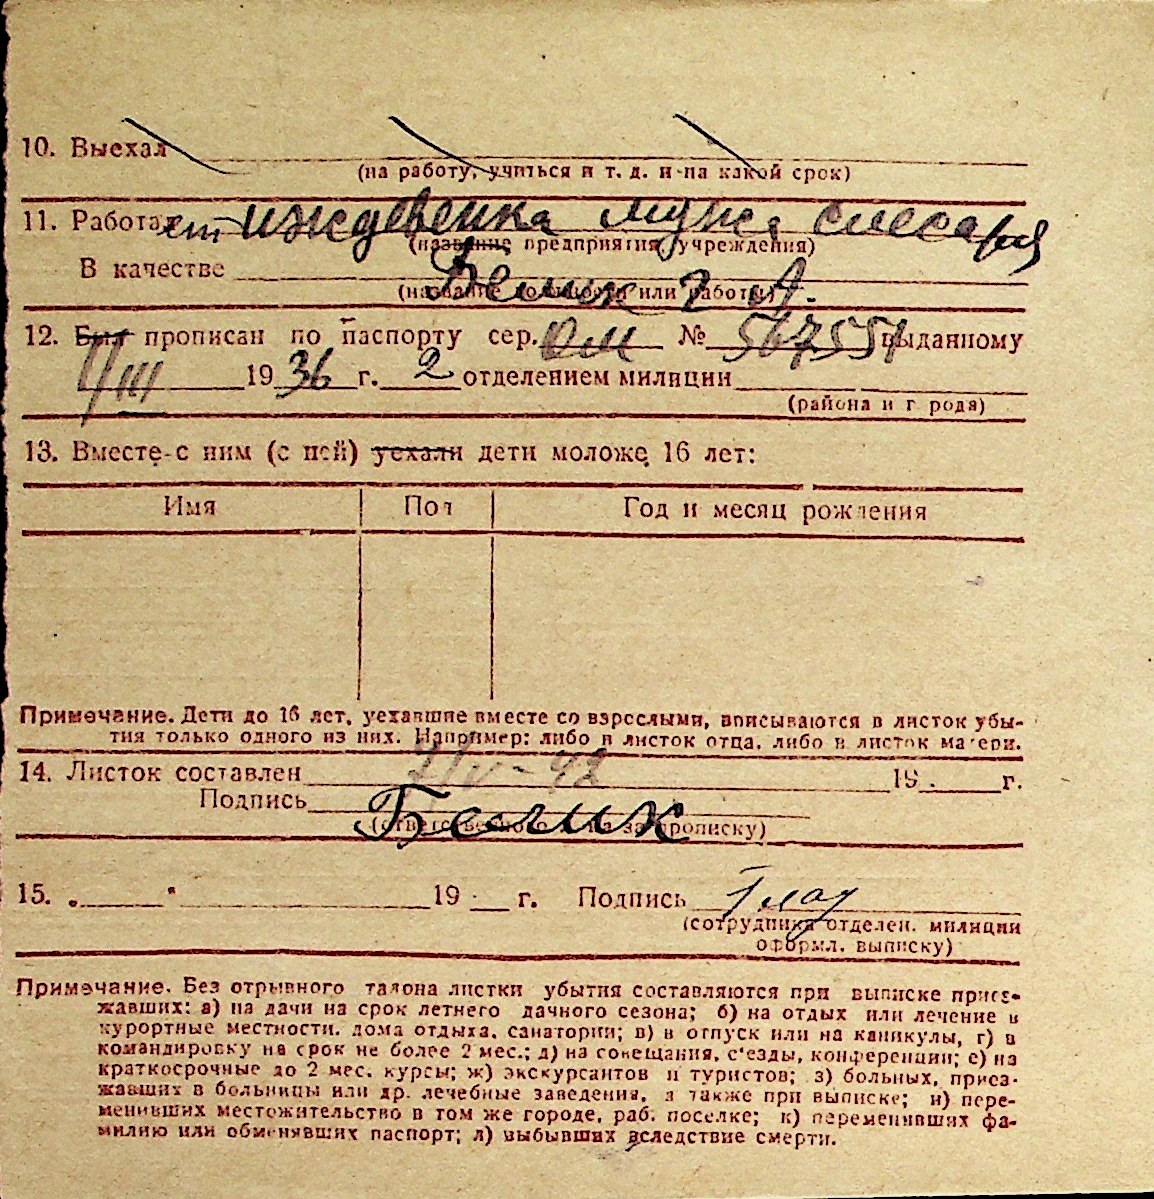 10. Выехал
(на работу, учиться и т. д. и на какой срок)
11. Работает иждевенка мужа слесаря
(название предприятия, учреждения)
В качестве Белик г А.
(название должности или работы)
12. Был прописан по паспорту сер. ОМ № 567551 выданному
1/III 1936 г. 2 отделением милиции
(района и г рода)
13. Вместе с ним (с ней) уехали дети моложе 16 лет:
Имя Пол Год и месяц рождения
Примечание. Дети до 16 лет, уехавшие вместе со взрослыми, вписываются в листок убы-
тия только одного из них. Например: либо в листок отца, либо в листок матери.
14. Листок составлен 7/V - 42 19 . г.
Подпись Белик
(ответственного за прописку)
15. „ “ 19 г. Подпись
(сотрудника отделен. милиции
оформл. выписку)
Примечание. Без отрывного талона листки убытия составляются при выписке приез-
жавших: а) на дачи на срок летнего дачного сезона; б) на отдых или лечение в
курортные местности, дома отдыха, санатории; в) в отпуск или на каникулы, г) в
командировку на срок не более 2 мес.; д) на совещания, с'езды, конференции; е) на
краткосрочные до 2 мес. курсы; ж) экскурсантов и туристов; з) больных, приез-
жавших в больницы или др. лечебные заведения, а также при выписке; и) пере-
менивших местожительство в том же городе, раб. поселке; к) переменивших фа-
милию или обменявших паспорт; л) выбывших вследствие смерти.